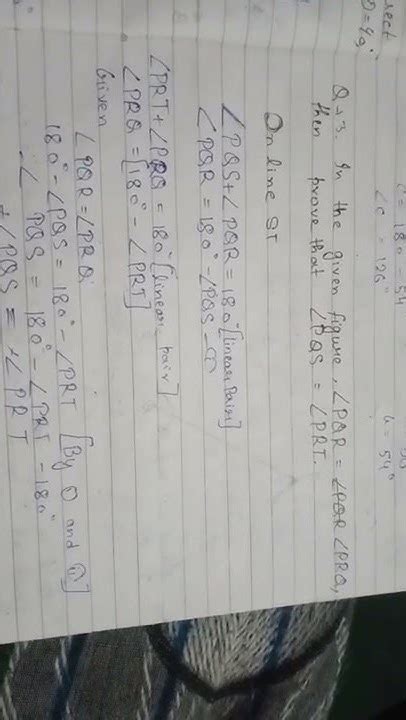 ∠C = 180° - 54
∠C = 126°
= 54°
Q → 3. In the given figure, ∠PQR = ∠PQR ∠PRQ,
then prove that ∠PQS = ∠PRT.
On line ST
∠PQS + ∠PQR = 180° [linear Pair]
∠PQR = 180° - ∠PQS - ①
∠PRT + ∠PRQ = 180° [linear pair]
∠PRQ = [180° - ∠PRT]
Given
∠PQR = ∠PRQ
180° - ∠PQS = 180° - ∠PRT [By ① and ⑪]
- ∠PQS = 180° - ∠PRT - 180°
+ ∠PQS = + ∠PRT